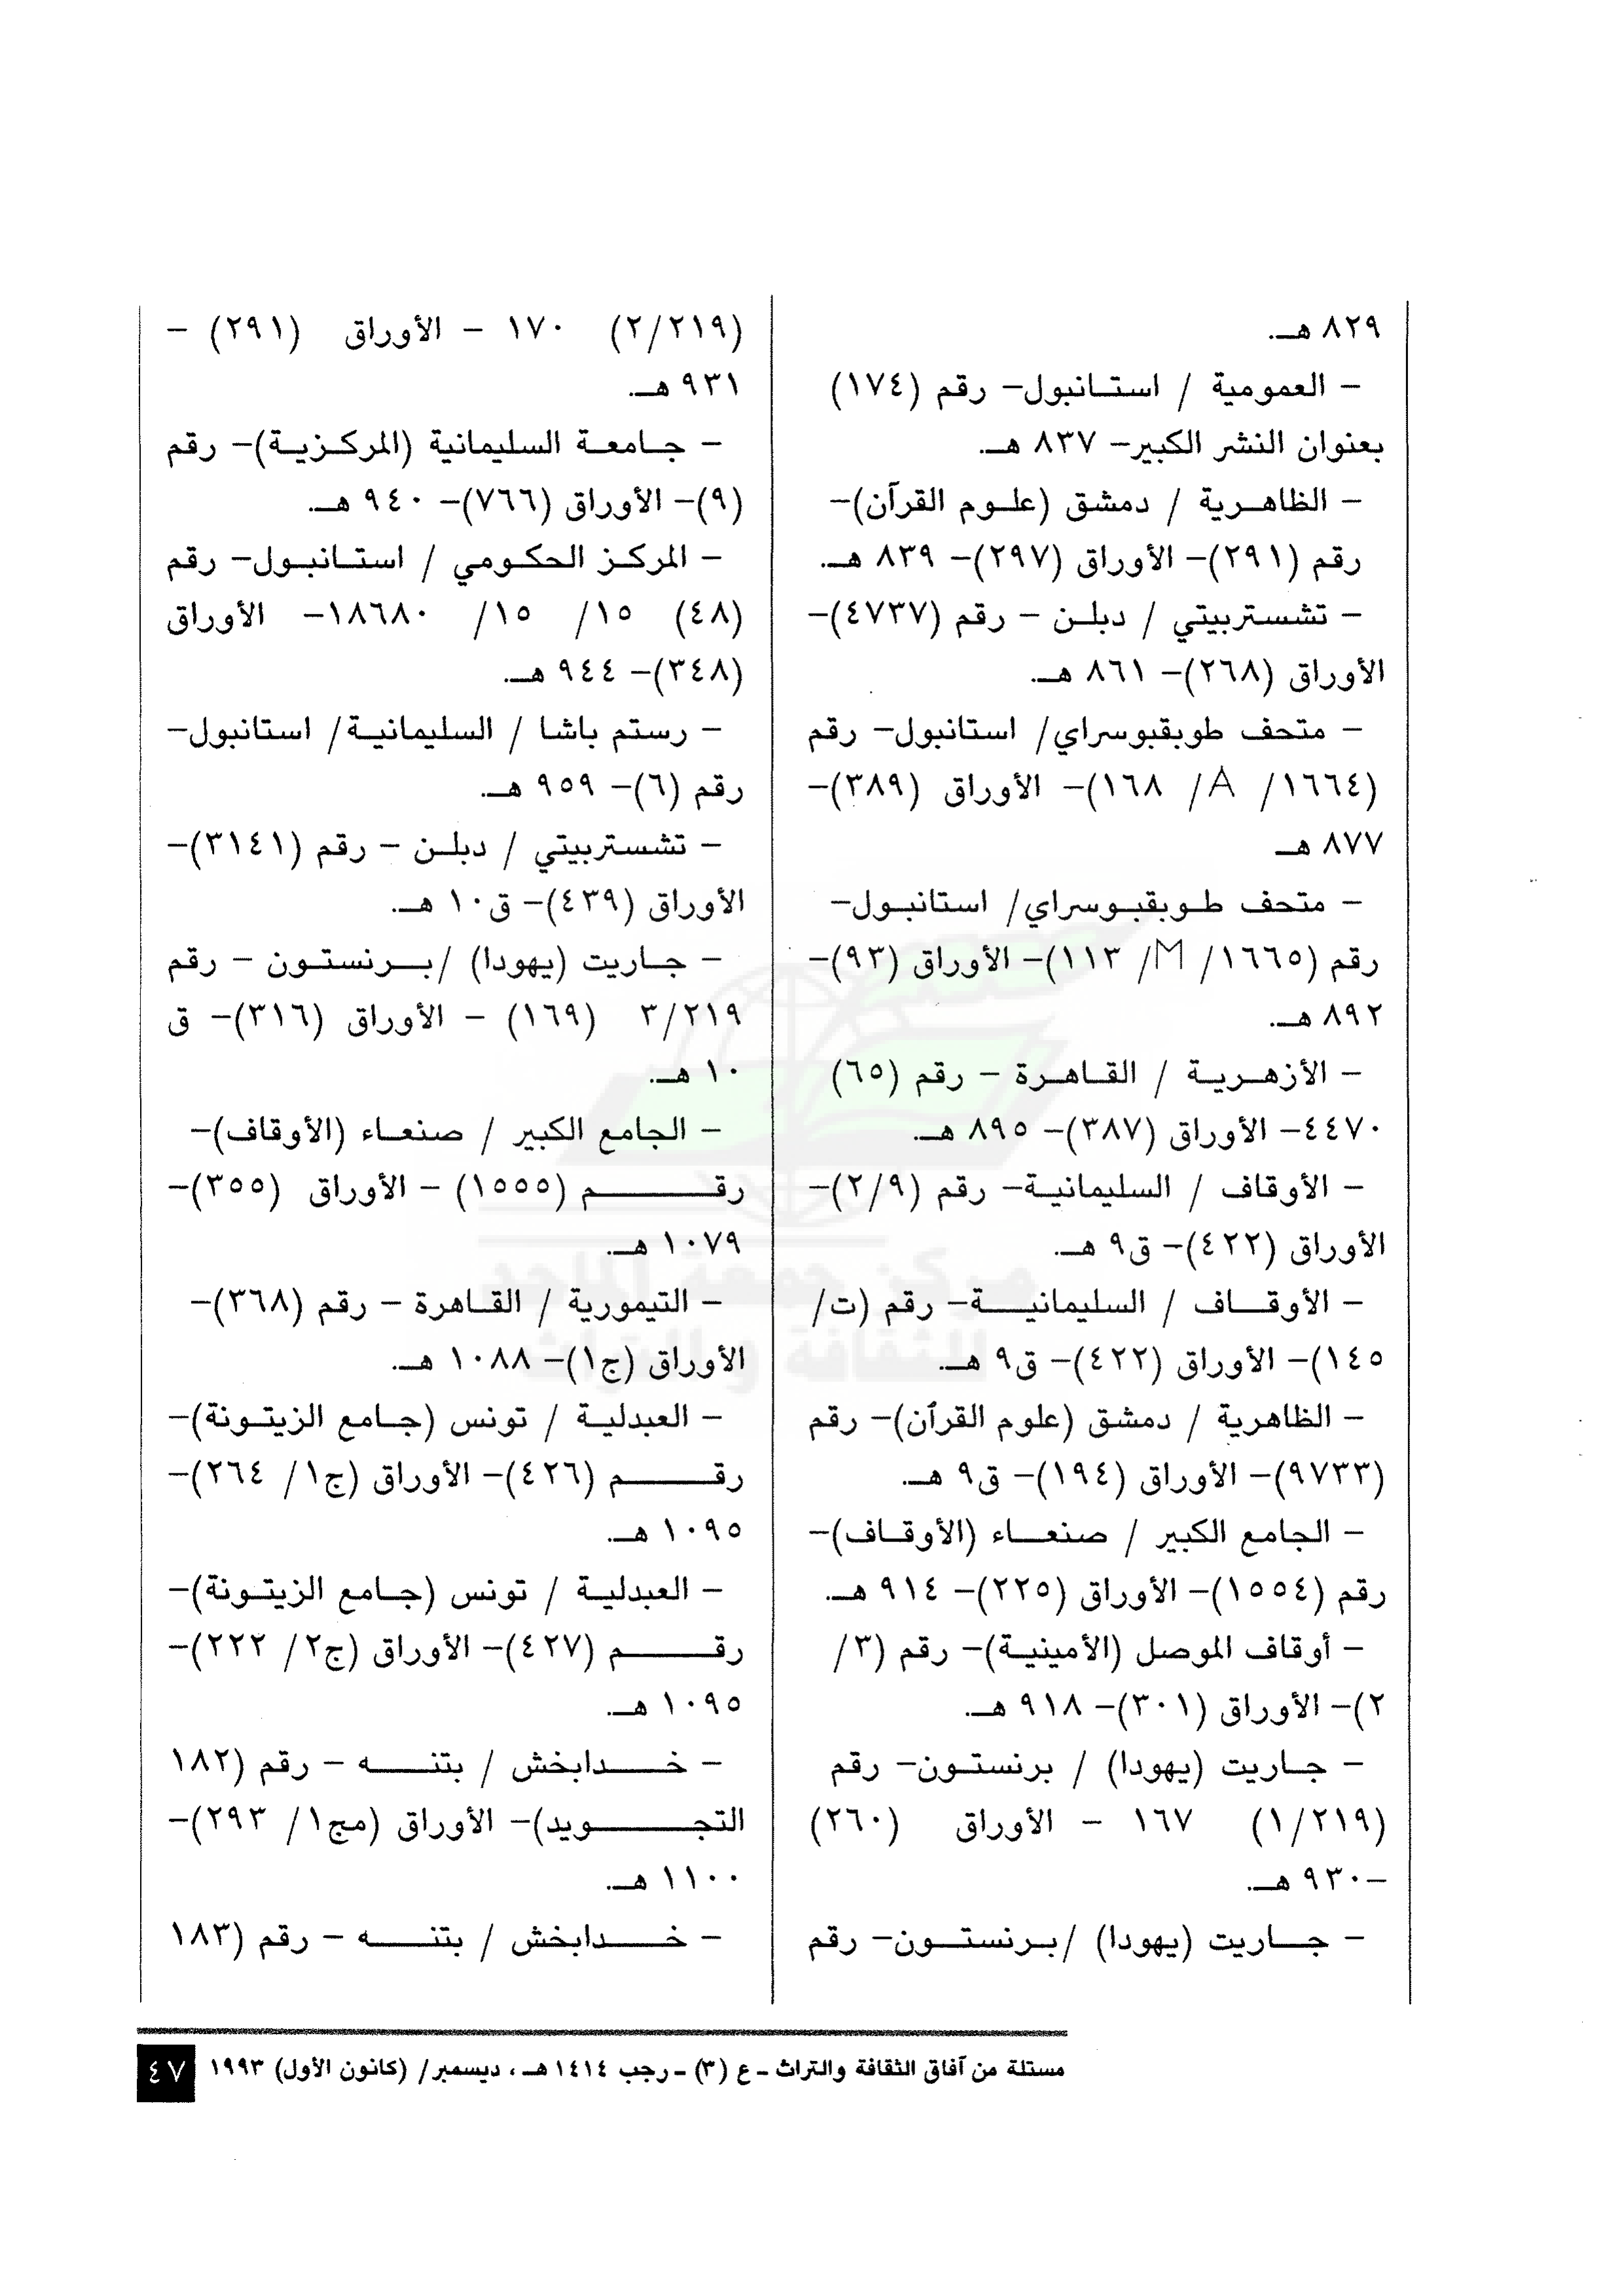 ٨٢٩ هـ.
- العمومية / استانبول- رقم (١٧٤)
بعنوان النشر الكبير- ٨٣٧ هـ.
- الظاهرية / دمشق (علوم القرآن)-
رقم (٢٩١)- الأوراق (٢٩٧)- ٨٣٩ هـ.
- تشستربيتي / دبلن - رقم (٤٧٣٧)-
الأوراق (٢٦٨)- ٨٦١ هـ.
- متحف طوبقبوسراي/ استانبول- رقم
(١٦٦٤/ A/ ١٦٨)- الأوراق (٣٨٩)-
٨٧٧ هـ
- متحف طوبقبوسراي/ استانبول-
رقم (١٦٦٥/ M/ ١١٣)- الأوراق (٩٣)-
٨٩٢ هـ.
- الأزهرية / القاهرة - رقم (٦٥)
٤٤٧٠- الأوراق (٣٨٧)- ٨٩٥ هـ.
- الأوقاف / السليمانية- رقم (٢/٩)-
الأوراق (٤٢٢)- ق٩ هـ.
- الأوقاف / السليمانية- رقم (ت/
١٤٥)- الأوراق (٤٢٢)- ق٩ هـ.
- الظاهرية / دمشق (علوم القرآن)- رقم
(٩٧٣٣)- الأوراق (١٩٤)- ق٩ هـ.
- الجامع الكبير / صنعاء (الأوقاف)-
رقم (١٥٥٤)- الأوراق (٢٢٥)- ٩١٤ هـ.
- أوقاف الموصل (الأمينية)- رقم (٣/
٢)- الأوراق (٣٠١)- ٩١٨ هـ.
- جاريت (يهودا) / برنستون- رقم
(١/٢١٩) ١٦٧ - الأوراق (٢٦٠)
-٩٣٠ هـ.
- جاريت (يهودا) /برنستون- رقم
(٢/٢١٩) ١٧٠ - الأوراق (٢٩١) -
٩٣١ هـ.
- جامعة السليمانية (المركزية)- رقم
(٩)- الأوراق (٧٦٦)- ٩٤٠ هـ.
- المركز الحكومي / استانبول- رقم
(٤٨) ١٥/ ١٥/ ١٨٦٨٠- الأوراق
(٣٤٨)- ٩٤٤ هـ.
- رستم باشا / السليمانية/ استانبول-
رقم (٦)- ٩٥٩ هـ.
- تشستربيتي / دبلن - رقم (٣١٤١)-
الأوراق (٤٣٩)- ق١٠ هـ.
- جاريت (يهودا) /برنستون - رقم
٣/٢١٩ (١٦٩) - الأوراق (٣١٦)- ق
١٠ هـ.
- الجامع الكبير / صنعاء (الأوقاف)-
رقم (١٥٥٥) - الأوراق (٣٥٥)-
١٠٧٩ هـ.
- التيمورية / القاهرة - رقم (٣٦٨)-
الأوراق (ج١)- ١٠٨٨ هـ.
- العبدلية / تونس (جامع الزيتونة)-
رقم (٤٢٦)- الأوراق (ج١/ ٢٦٤)-
١٠٩٥ هـ.
- العبدلية / تونس (جامع الزيتونة)-
رقم (٤٢٧)- الأوراق (ج٢/ ٢٢٢)-
١٠٩٥ هـ.
- خدابخش / بتنه - رقم (١٨٢
التجويد)- الأوراق (مج١/ ٢٩٣)-
١١٠٠ هـ.
- خدابخش / بتنه - رقم (١٨٣
مركز جمعة الماجد
للثقافة والتراث
مستلة من آفاق الثقافة والتراث - ع (٣) - رجب ١٤١٤ هـ ، ديسمبر/ (كانون الأول) ١٩٩٣ ٤٧